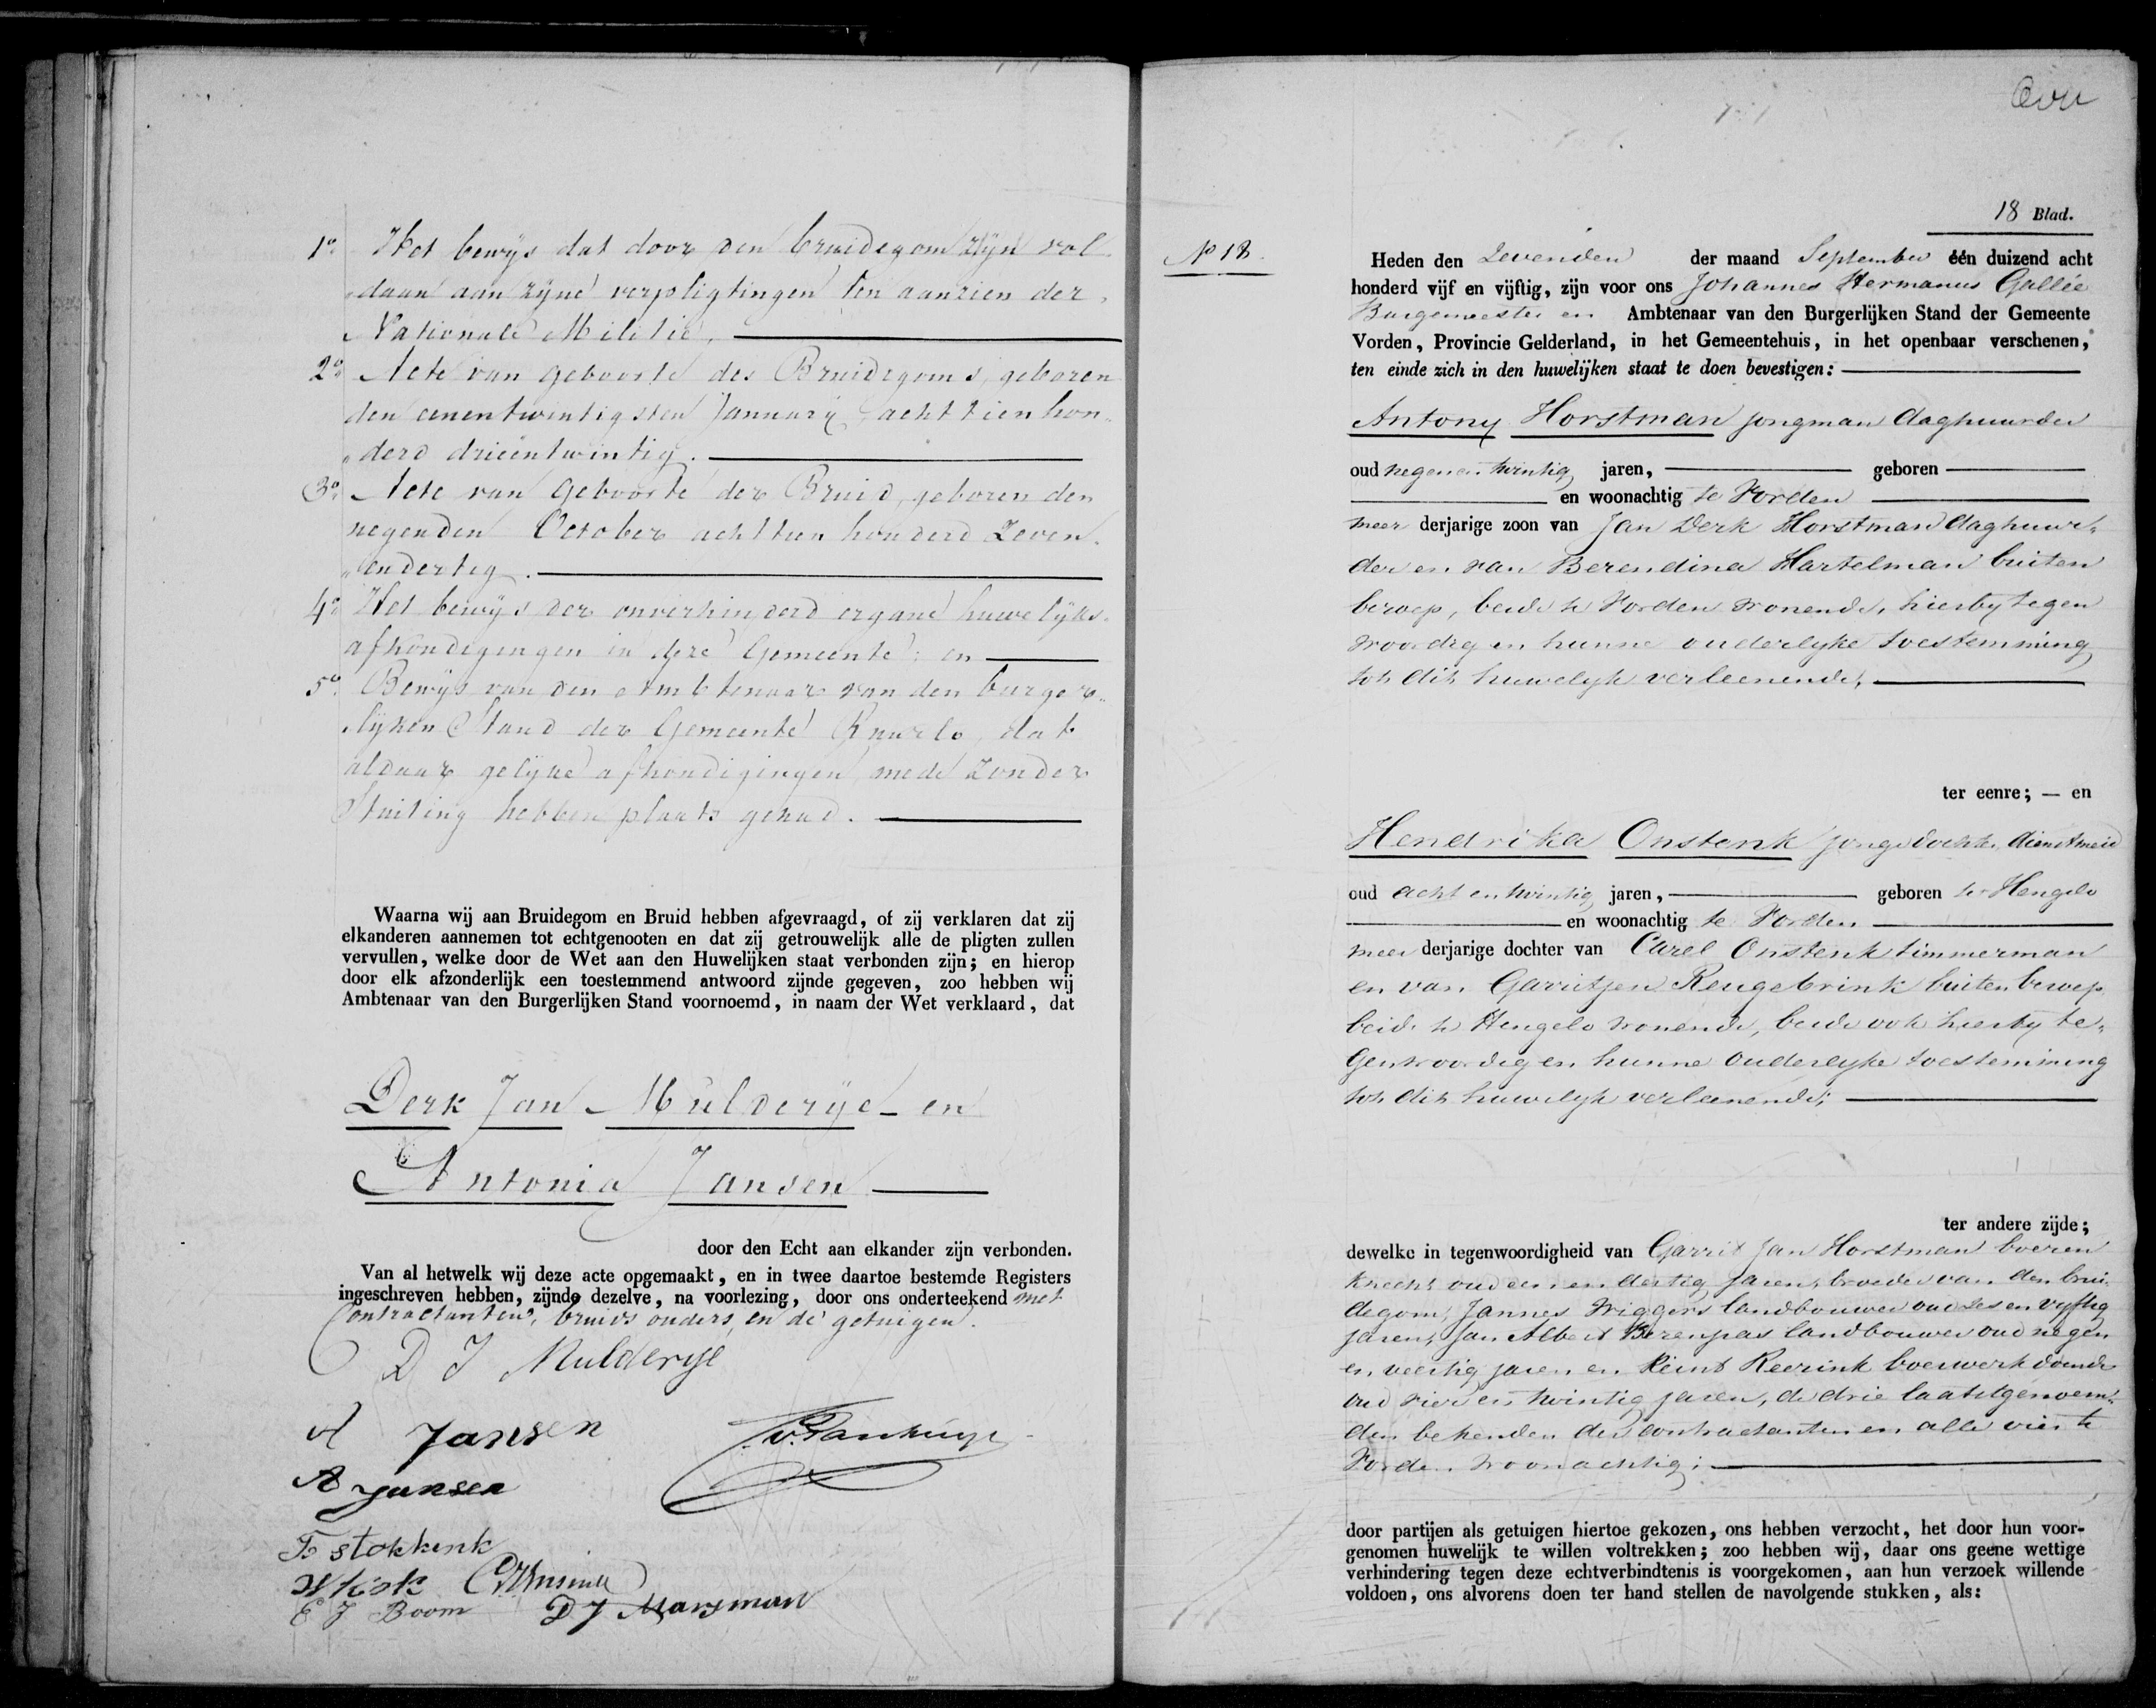 1o. Het bewijs dat door den bruidegom zijn vol-
daan aan zijne verpligtingen ten aanzien der
Nationale Militie,
2o. Acte van geboorte des Bruidegoms, geboren
den eenentwintigsten January achttienhon-
derd drieëntwintig.
3o. Acte van Geboorte der Bruid, geboren den
negenden October achttien honderd Zeven-
endertig.
4o. Het bewijs der onverhinderd ergane huwelijks-
afkondigingen in deze Gemeente; en
5o. Bewijs van den Ambtenaar van den burger-
lijken Stand der Gemeente Ruurlo, dat
aldaar gelijke afkondigingen mede zonder
Stuiting hebben plaats gehad.
Waarna wij aan Bruidegom en Bruid hebben afgevraagd, of zij verklaren dat zij
elkanderen aannemen tot echtgenooten en dat zij getrouwelijk alle de pligten zullen
vervullen, welke door de Wet aan den Huwelijken staat verbonden zijn; en hierop
door elk afzonderlijk een toestemmend antwoord zijnde gegeven, zoo hebben wij
Ambtenaar van den Burgerlijken Stand voornoemd, in naam der Wet verklaard, dat
Derk Jan Mulderije en
Antonia Jansen
door den Echt aan elkander zijn verbonden.
Van al hetwelk wij deze acte opgemaakt, en in twee daartoe bestemde Registers
ingeschreven hebben, zijnde dezelve, na voorlezing, door ons onderteekend met
Contractanten, bruids ouders, en de getuigen.
D J Mulderije
A Jansen
A Jansen
F Stokkink
W Kok
E J Boom D J Marsman
18 Blad.
No 18.
Heden den Zevenden der maand September één duizend acht
honderd vijf en vijftig, zijn voor ons Johannes Hermanus Gallée
Burgemeester en Ambtenaar van den Burgerlijken Stand der Gemeente
Vorden, Provincie Gelderland, in het Gemeentehuis, in het openbaar verschenen,
ten einde zich in den huwelijken staat te doen bevestigen:
Antony Horstman jongman daghuurder
oud negenen twintig jaren, geboren
en woonachtig te Vorden
meer derjarige zoon van Jan Derk Horstman daghuur-
der en van Berendina Hartelman buiten
beroep, beide te Vorden wonende, hierbij tegen
woordig en hunne ouderlyke toestemming
tot dit huwelyk verleenende,
ter eenre; — en
Hendrika Onstenk jonge dochter, dienstmeid
oud acht en twintig jaren, geboren te Hengelo
en woonachtig te Vorden
meer derjarige dochter van Carel Onstenk timmerman
en van Garritjen Rengebrink buiten beroep
beide te Hengelo wonende, beide ook hierby te-
genwoordig en hunne ouderlyke toestemming
tot dit huwelyk verleenende;
ter andere zijde;
dewelke in tegenwoordigheid van Garrit Jan Horstman boeren
knecht oud een en dertig jaren, broeder van den brui-
degom, Jannes Wiggers landbouwer oud zes en vyftig
jaren, Jan Albert Berenpas landbouwer oud negen
en veertig jaren en Reint Reerink boerwerk doende
oud vier en twintig jaren, de drie laatstgenoem-
den bekenden der contractanten en alle vier te
Vorden woonachtig;
door partijen als getuigen hiertoe gekozen, ons hebben verzocht, het door hun voor-
genomen huwelijk te willen voltrekken; zoo hebben wij, daar ons geene wettige
verhindering tegen deze echtverbindtenis is voorgekomen, aan hun verzoek willende
voldoen, ons alvorens doen ter hand stellen de navolgende stukken, als: